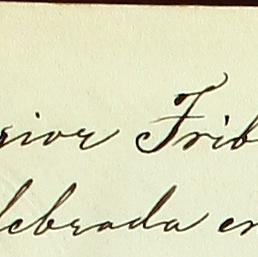 rior Trib
lebrada en